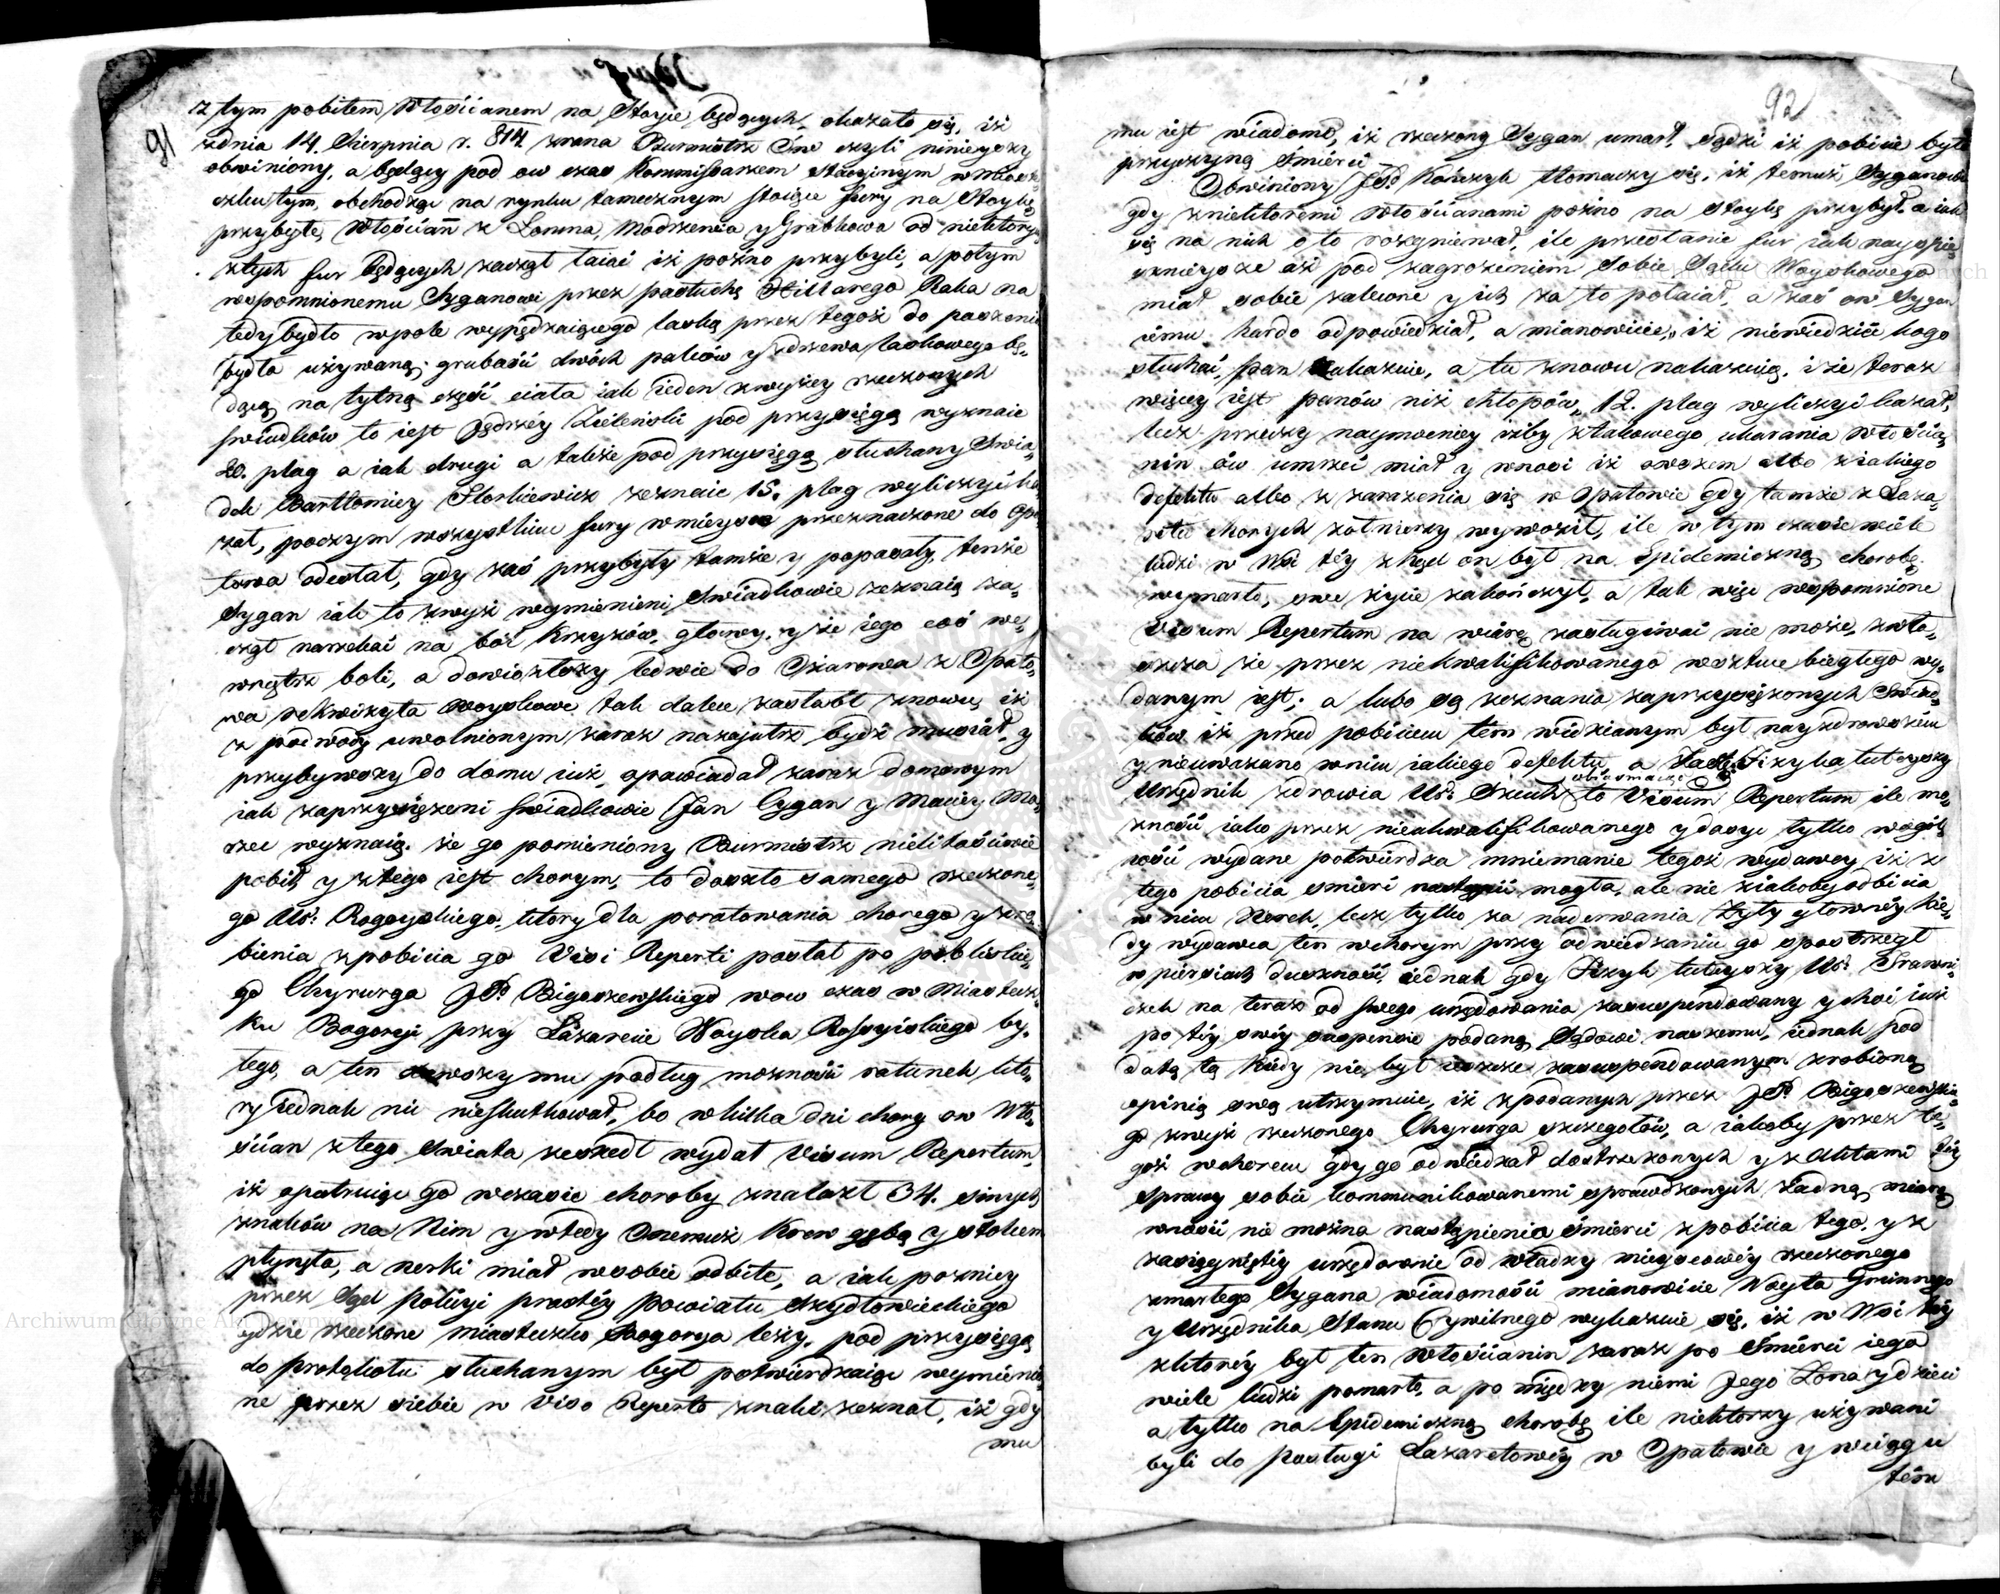 91
z tym pobitem Włościanem na Stoyce będących, okazało się, iż
zdnia 14. Sierpnia r. 814 zwana Burmistrz czyli ninieyszy
obwiniony, a będący pod ow czas Kommissarzem stacyinym w miast-
eczku tym, obchodząc na rynku tamecznym stoiące fury na Stoykę
przybyłe, Włościan z Łowna, Modrzewia y Grabkowa od niektorych
z tych fur będących zaczął łaiać iż pozno przybyli, a potym
wspomnionemu Cyganowi przez pastucha Hillarego Raka na
tedy bydło w pole wypędzaiącego laską przez tegoż do paszenia
bydła używaną, grubości dwóch palców y z drzewa laskowego bę-
dącą na tylną część ciała iak ieden zwyżey rzeczonych
świadków to iest Jędrzéy Zieleński pod przysięgą wyznaie
20. plag a iak drugi a także pod przysięgą słuchany Swia-
dek Bartłomiey Stoskiewicz zeznaie 15. plag wyliczyć ka-
zał, poczym wszystkie fury w mieysce przeznaczone do Opa-
towa odesłał, gdy zaś przybyły tamże y popasały, tenże
Cygan iak to zwyż wymienieni Swiadkowie zeznaią za-
czął narzekać na bol Krzyżów, głowy, y że iego coś we-
wnątrz boli, a dowiozłszy ledwie do Ożarowa z Opato-
wa rekwizyta woyskowe tak dalece zasłabł znowu, iż
z podwody uwolnionym zaraz nazajutrz bydź musiał, y
przybywszy do domu iuż opowiadał zaraz domowym
iak zaprzysiężeni swiadkowie Jan Cygan y Maciey Mo-
rzec wyznaią. że go pomieniony Burmistrz nielitościwie
pobił y z tego iest chorym, to doszło samego rzeczone-
go Ur: Rogoyskiego, ktory dla poratowania chorego y zro-
bienia z pobicia go Visi Reperti posłał po pobliskie-
go Chyrurga JP. Bigoszewskiego wow czas w Miastecz-
ku Bogoryi przy Lazarecie Woyska Rossyiskiego by-
łego, a ten dawszy mu podług możności ratunek kto-
ry iednak nic nieskutkował, bo w kilka dni chory ow Wło-
ścian z tego Swiata zeszedł wydał Visum Repertum,
iż opatruiąc go wczasie choroby znalazł 34. sinych
znaków na Nim y wtedy Onemuż Krew gębą y stolcem
płynęła, a nerki miał w sobie odbite, a iak pozniey
przez Sąd Policyi prostéy powiatu Szydłowieckiego
gdzie rzeczone miasteczko Bogorya leży, pod przysięgą
do protokołu słuchanym był potwierdzaiąc wymienio-
ne przez siebie w Viso Reperto znaki zeznał, iż gdy
mu
92
mu iest wiadomo, iż rzeczony Cygan umarł, sądzi iż pobicie było
przyczyną śmierci
Obwiniony JP. Kończyk tłomaczy się, iż temuż Cyganowi
gdy z niektóremi włościanami pozno na stoykę przybył, a iak
się na nich o to rozgniewał, ile przesłanie fur iak nayspie-
sznieysze aż pod zagrożeniem Sobie Sądu Woyskowego
miał sobie zalecone y ich za to połaiał, a zaś ow Cygan
iému hardo odpowiedział, a mianowicie „iż niewiedzieć kogo
słuchać, pan nakazuie, a tu znowu nakazuią, i że teraz
więcey iest panów niż chłopów„ 12. plag wyliczyć kazał,
lecz przeczy naymocniey iżby z takowego ukarania włościa-
nin ów umrzeć miał y wnosi iż owszem albo z iakiego
defektu albo z zarażenia się w Opatowie gdy tamże z Laza-
retu chorych żołnierzy wywoził, ile w tym czasie wiele
ludzi w Wsi téy zkąd on był na Epidemiczną chorobę
wymarło, swe życie zakończył, a tak więc wspomnione
Visum Repertum na wiarę zasługiwać nie może, zwła-
szcza że przez niekwalifikowanego w sztuce biegłego wy-
danym iest; a lubo są zeznania zaprzysiężonych Swiad-
ków iż przed pobiciem tem widzianym był nayzdrowszém
y nieuważano w nim iakiego defektu, a Fizyka tuteyszy
obiasniaiąc
Urzędnik zdrowia Ur: to Visum Repertum ile mo-
żność iako przez niekwalifikowanego y dosyć tylko wogól-
ności wydane potwierdza mniemanie tegoż wydawcy iż z
tego pobicia smierć nastąpić mogła, ale nie z iakoby odbicia
w nim Nerek, lecz tylko za naderwania Żyły głównéy kie-
dy wydawca ten w chorym przy odwiedzaniu go spostrzegł
w piersiach duszność, iednak gdy Fizyk tuteyszy Ur: Trawni-
czek na teraz od swego urzędowania zasuspendowany y choć iuż
po téy swéy suspensie podaną Sądowi naszemu, iednak pod
datą tą kiedy nie był ieszcze zasuspendowanym zrobioną
opinią swą utrzymuie, iż z podanych przez JP. Bigoszewskie-
go zwyż rzeczonego Chyrurga szczegołów, a iakoby przez te-
goż w chorem gdy go odwiedzał dostrzeżonych y z Aktami téy
sprawy sobie kommunikowanemi sprawdzonych żadną miarą
wnosić nie można nastąpienia śmierci z pobicia tego, y z
zasięgniętéy urzędownie od władzy mieyscowéy rzeczonego
zmarłego Cygana wiadomości mianowicie Woyta Gminnego
y Urzędnika Stanu Cywilnego wykazuie się, iż w Wsi téy
z któréy był ten Włościanin zaraz po śmierci iego
wiele ludzi pomarło, a po między niemi Jego Żona y dzieci
a tylko na Epidemiczną chorobę ile niektorzy używani
byli do posługi Lazaretowéy w Opatowie y wciągu
tém